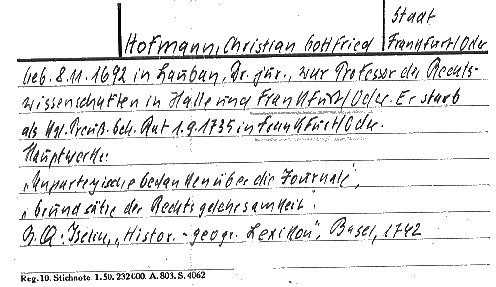 Stadt
Hofmann, Christian Gottfried Frankfurt/Oder
Geb. 8.11.1692 in Lauban, Dr. jur., war Professor der Rechts-
wissenschaften in Halle und Frankfurt/Oder. Er starb
als Kgl. Preuß. Geh. Rat 1.9.1735 in Frankfurt/Oder.
Hauptwerke:
„Unparteyische Gedanken über die Journale",
„Grundsätze der Rechtsgelehrsamheit".
B.Q.: Iselin, „Histor.-geogr. Lexikon", Basel, 1742
Reg. 10. Stichnote. 1. 50. 232 000. A. 803. S. 4062